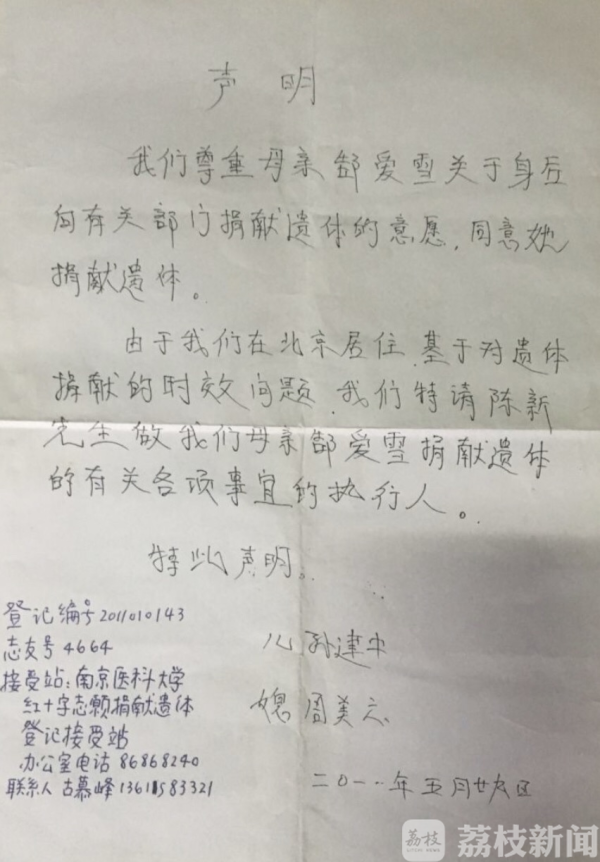 声 明
我们尊重母亲郜爱雪关于身后
向有关部门捐献遗体的意愿,同意她
捐献遗体。
由于我们在北京居住,基于对遗体
捐献的时效问题,我们特请陈新
先生做我们母亲郜爱雪捐献遗体
的有关各项事宜的执行人。
特此声明。
儿 孙建中
媳 周美云
二〇一一年五月廿九日
登记编号 2011010143
志友号 4664
接受站:南京医科大学
红十字志愿捐献遗体
登记接受站
办公室电话 86868240
联系人 古慕峰
荔枝
LITCHI NEWS
荔枝新闻